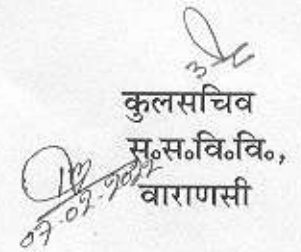 कुलसचिव
स॰स॰वि॰वि॰,
वाराणसी
07.02.2022